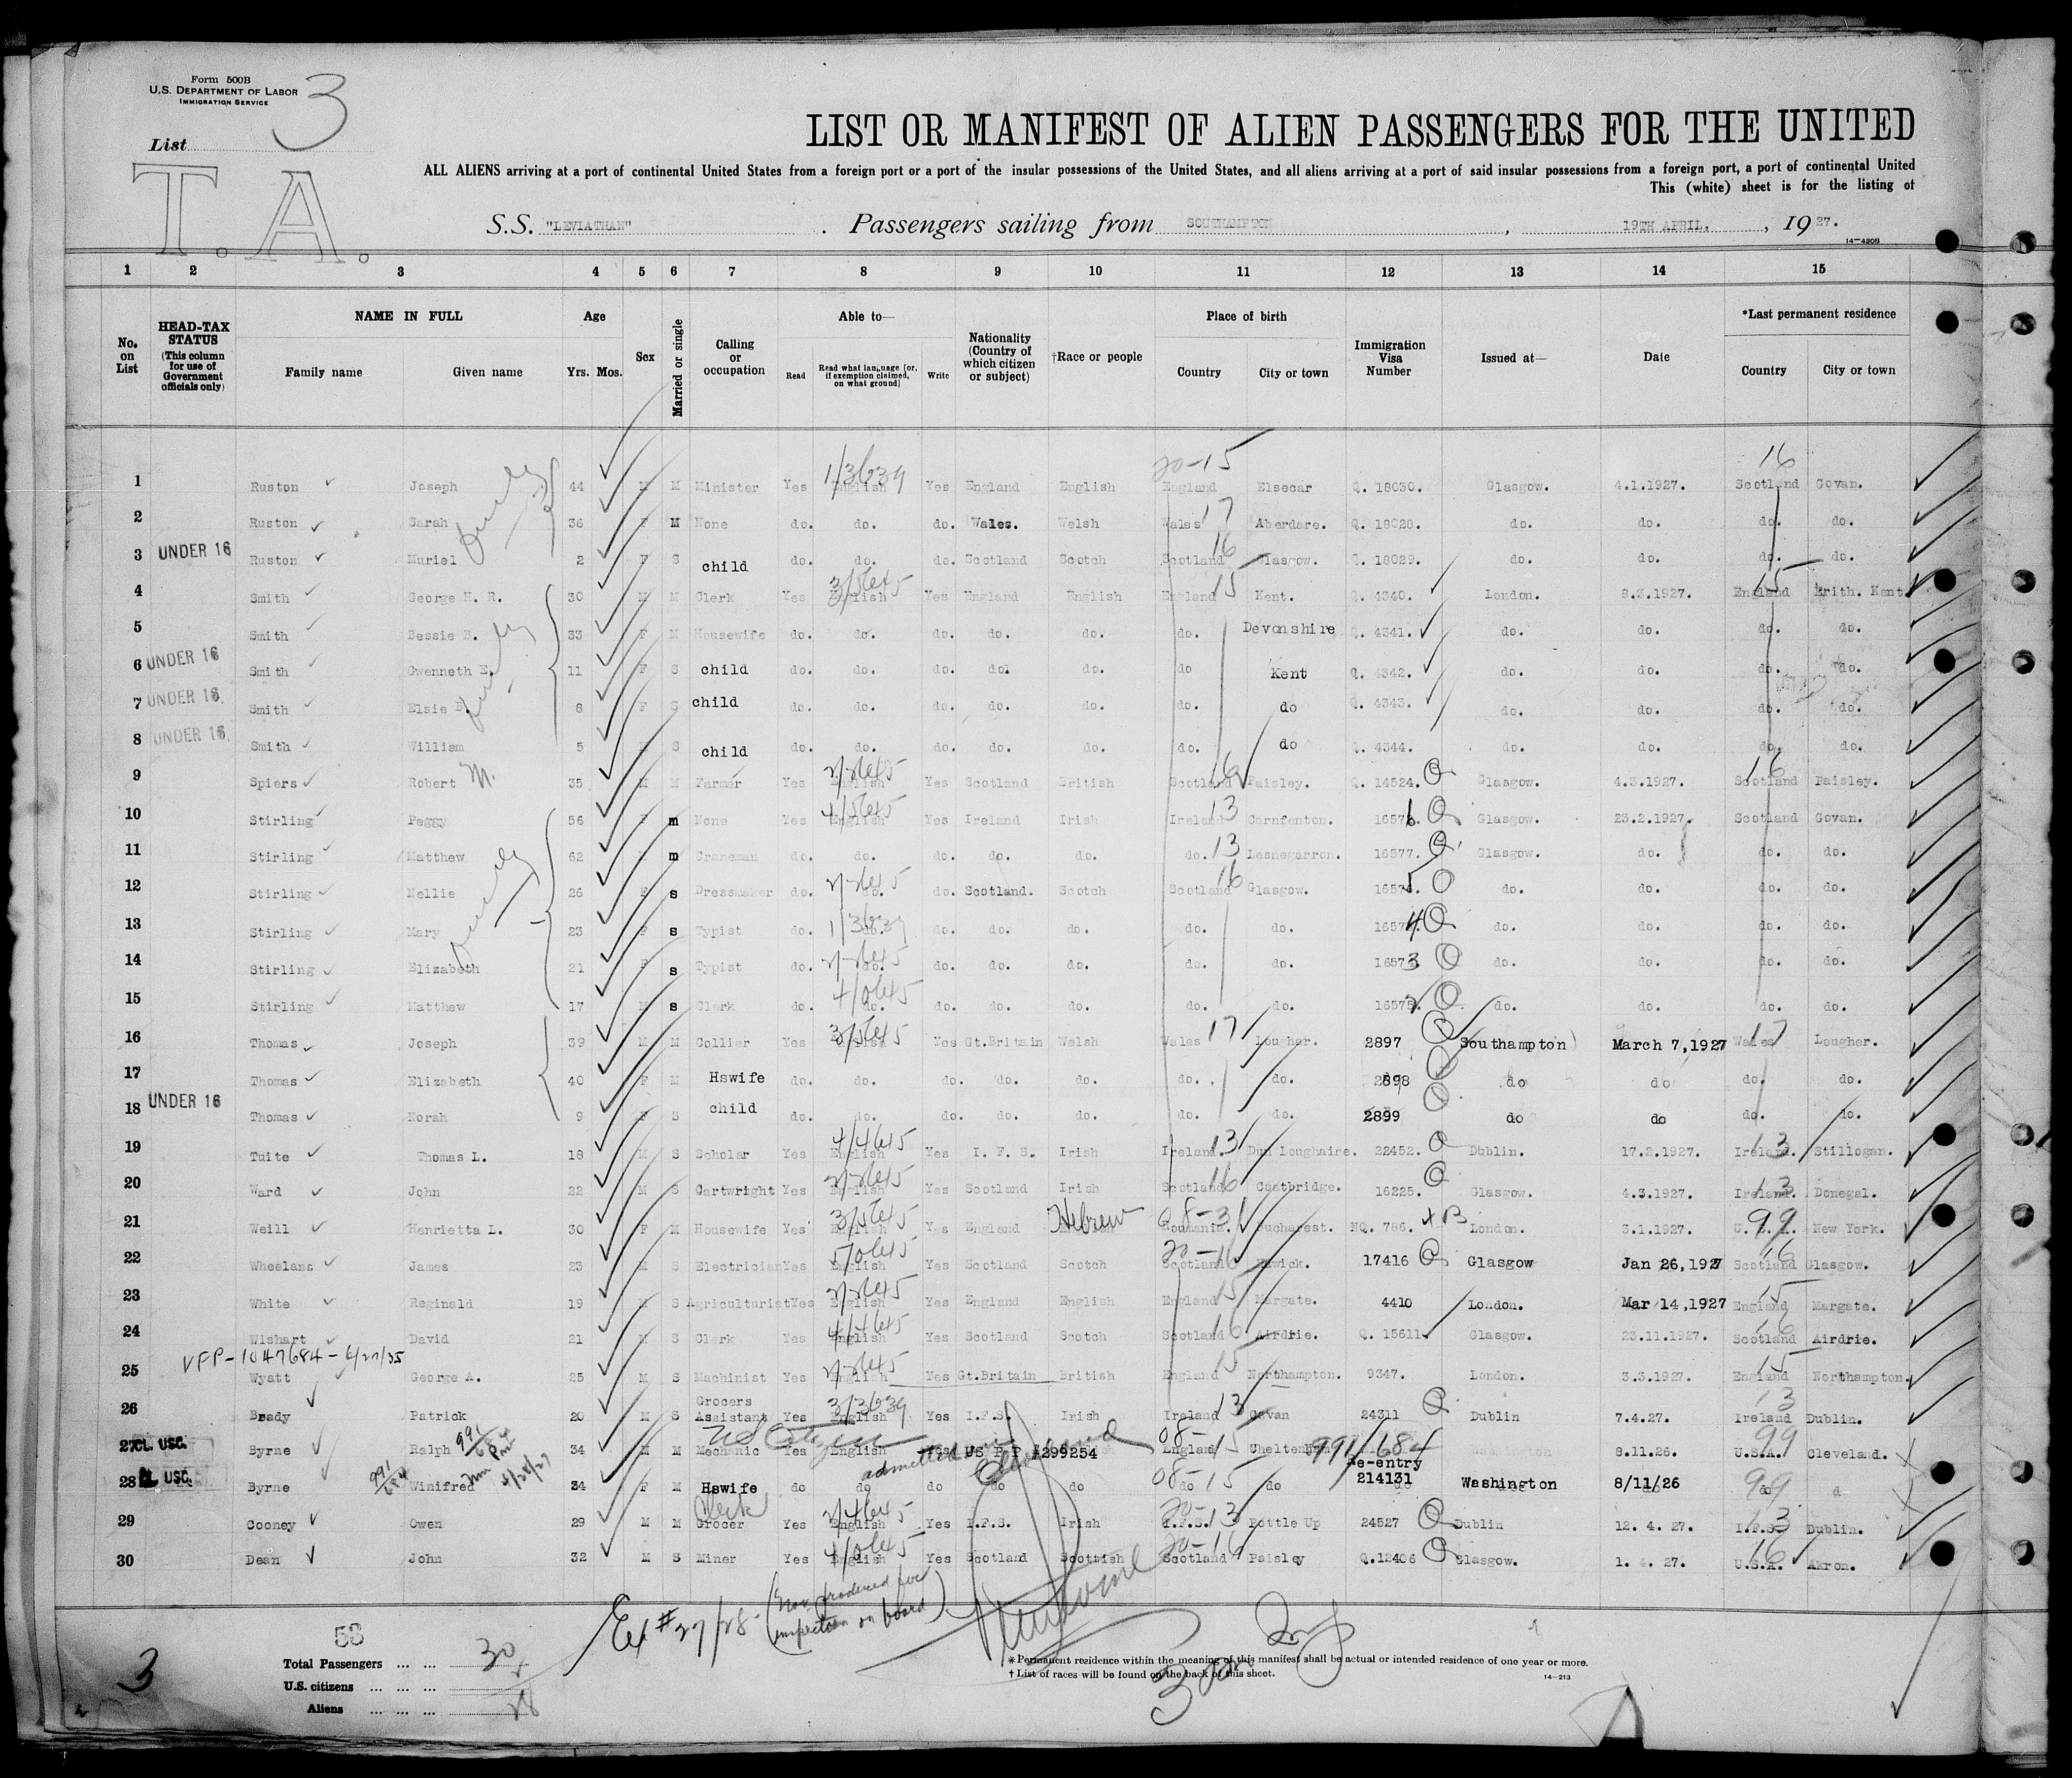 Form 500B
U.S. DEPARTMENT OF LABOR
IMMIGRATION SERVICE
3
List
T. A.
LIST OR MANIFEST OF ALIEN PASSENGERS FOR THE UNITED
ALL ALIENS arriving at a port of continental United States from a foreign port or a port of the insular possessions of the United States, and all aliens arriving at a port of said insular possessions from a foreign port, a port of continental United
This (white) sheet is for the listing of
S.S. "LEVIATHAN" . Passengers sailing from SOUTHAMPTON , 19TH APRIL. , 19 27.
14—420B
1 2 3 4 5 6 7 8 9 10 11 12 13 14 15
No. on List
HEAD-TAX STATUS (This column for use of Government officials only)
NAME IN FULL Family name Given name
Age Yrs. Mos.
Sex
Married or single
Calling or occupation
Able to— Read Read what language [or, if exemption claimed, on what ground] Write
Nationality (Country of which citizen or subject)
†Race or people
Place of birth Country City or town
Immigration Visa Number
Issued at—
Date
*Last permanent residence Country City or town
1 Ruston Joseph 44 M M Minister Yes English Yes England English England Elsecar Q. 18030. Glasgow. 4.1.1927. Scotland Govan.
2 Ruston Sarah 36 F M None do. do. do. Wales. Welsh Wales Aberdare. Q. 18028. do. do. do. do.
3 UNDER 16 Ruston Muriel 2 F S child do. do. do. Scotland Scotch Scotland Glasgow. Q. 18029. do. do. do. do.
4 Smith George H. R. 30 M M Clerk Yes English Yes England English England Kent. Q. 4340. London. 8.3.1927. England Erith. Kent
5 Smith Bessie B. 33 F M Housewife do. do. do. do. do. do. Devonshire Q. 4341. do. do. do. do.
6 UNDER 16 Smith Gwenneth E. 11 F S child do. do. do. do. do. do Kent Q. 4342. do. do. do. do.
7 UNDER 16 Smith Elsie B. 8 F S child do. do. do. do. do. do. do Q. 4343. do. do. do. do.
8 UNDER 16 Smith William 5 M S child do. do. do. do. do. do. do Q. 4344. do. do. do. do.
9 Spiers Robert M. 35 M M Farmer Yes English Yes Scotland British Scotland Paisley. Q. 14524. Glasgow. 4.3.1927. Scotland Paisley.
10 Stirling Peggy 56 F m None Yes English Yes Ireland Irish Ireland Carnfenton. 16576 Glasgow. 23.2.1927. Scotland Govan.
11 Stirling Matthew 62 M m Craneman do. do. do. do. do. do. Lesnegarron. 16577. Glasgow. do. do. do.
12 Stirling Nellie 26 F s Dressmaker do. do. do. Scotland. Scotch Scotland Glasgow. 1657 do. do. do. do.
13 Stirling Mary 23 F s Typist do. do. do. do. do. do. do. 16574 do. do. do. do.
14 Stirling Elizabeth 21 F s Typist do. do. do. do. do. do. do. 16573 do. do. do. do.
15 Stirling Matthew 17 M s Clerk do. do. do. do. do. do. do. 1657 do. do. do. do.
16 Thomas Joseph 39 M M Collier Yes English Yes Gt.Britain Welsh Wales Lougher. 2897 Southampton March 7,1927 Wales Lougher.
17 Thomas Elizabeth 40 F M Hswife do. do. do. do. do. do. do. 2898 do do do. do.
18 UNDER 16 Thomas Norah 9 F S child do. do. do. do. do. do. do. 2899 do do do. do.
19 Tuite Thomas L. 18 M S Scholar Yes English Yes I. F. S. Irish Ireland. Dun Loughaire. 22452. Dublin. 17.2.1927. Ireland. Stillogan.
20 Ward John 22 M S Cartwright Yes English Yes Scotland Irish Scotland Coatbridge. 16225. Glasgow. 4.3.1927. Ireland. Donegal.
21 Weill Henrietta L. 30 F M Housewife Yes English Yes England Hebrew Roumania. Bucharest. NQ. 786. London. 3.1.1927. U. S. A. New York.
22 Wheelans James 23 M S Electrician Yes English Yes Scotland Scotch Scotland Hawick. 17416 Glasgow Jan 26,1927 Scotland Glasgow.
23 White Reginald 19 M S Agriculturist Yes English Yes England English England Margate. 4410 London. Mar 14,1927 England Margate.
24 Wishart David 21 M S Clerk Yes English Yes Scotland Scotch Scotland Airdrie. Q. 15611 Glasgow. 23.11.1927. Scotland Airdrie.
VFP-1047684-6/27/35
25 Wyatt George A. 25 M S Machinist Yes English Yes Gt.Britain British England Northampton. 9347. London. 3.3.1927. England Northampton.
26 Brady Patrick 20 M S Grocers Assistant Yes English Yes I.F.S. Irish Ireland Cavan 24311 Dublin 7.4.27. Ireland Dublin.
US Citizen
27 CL. USC. Byrne Ralph 34 M M Mechanic Yes English Yes US P P #299254 England Cheltenham 991/684 8.11.26. U.S.A. Cleveland.
admitted
28 CL USC. Byrne Winifred 34 F M Hswife do do do do do do do Re-entry 214131 Washington 8/11/26 do
29 Cooney Owen 29 M M Clerk Grocer Yes English Yes I.F.S. Irish I.F.S. Pottle Up 24527 Dublin 12. 4. 27. I.F.S. Dublin.
30 Dean John 32 M S Miner Yes English Yes Scotland Scottish Scotland Paisley Q.12406 Glasgow. 1. 4. 27. U.S.A. Akron.
Ex #27/28 - (Non produced for inspection on board)
58
3
Total Passengers ... ... 30
U.S. citizens ... ... ... 2
Aliens ... ... ... 28
*Permanent residence within the meaning of this manifest shall be actual or intended residence of one year or more.
† List of races will be found on the back of this sheet.
14—213